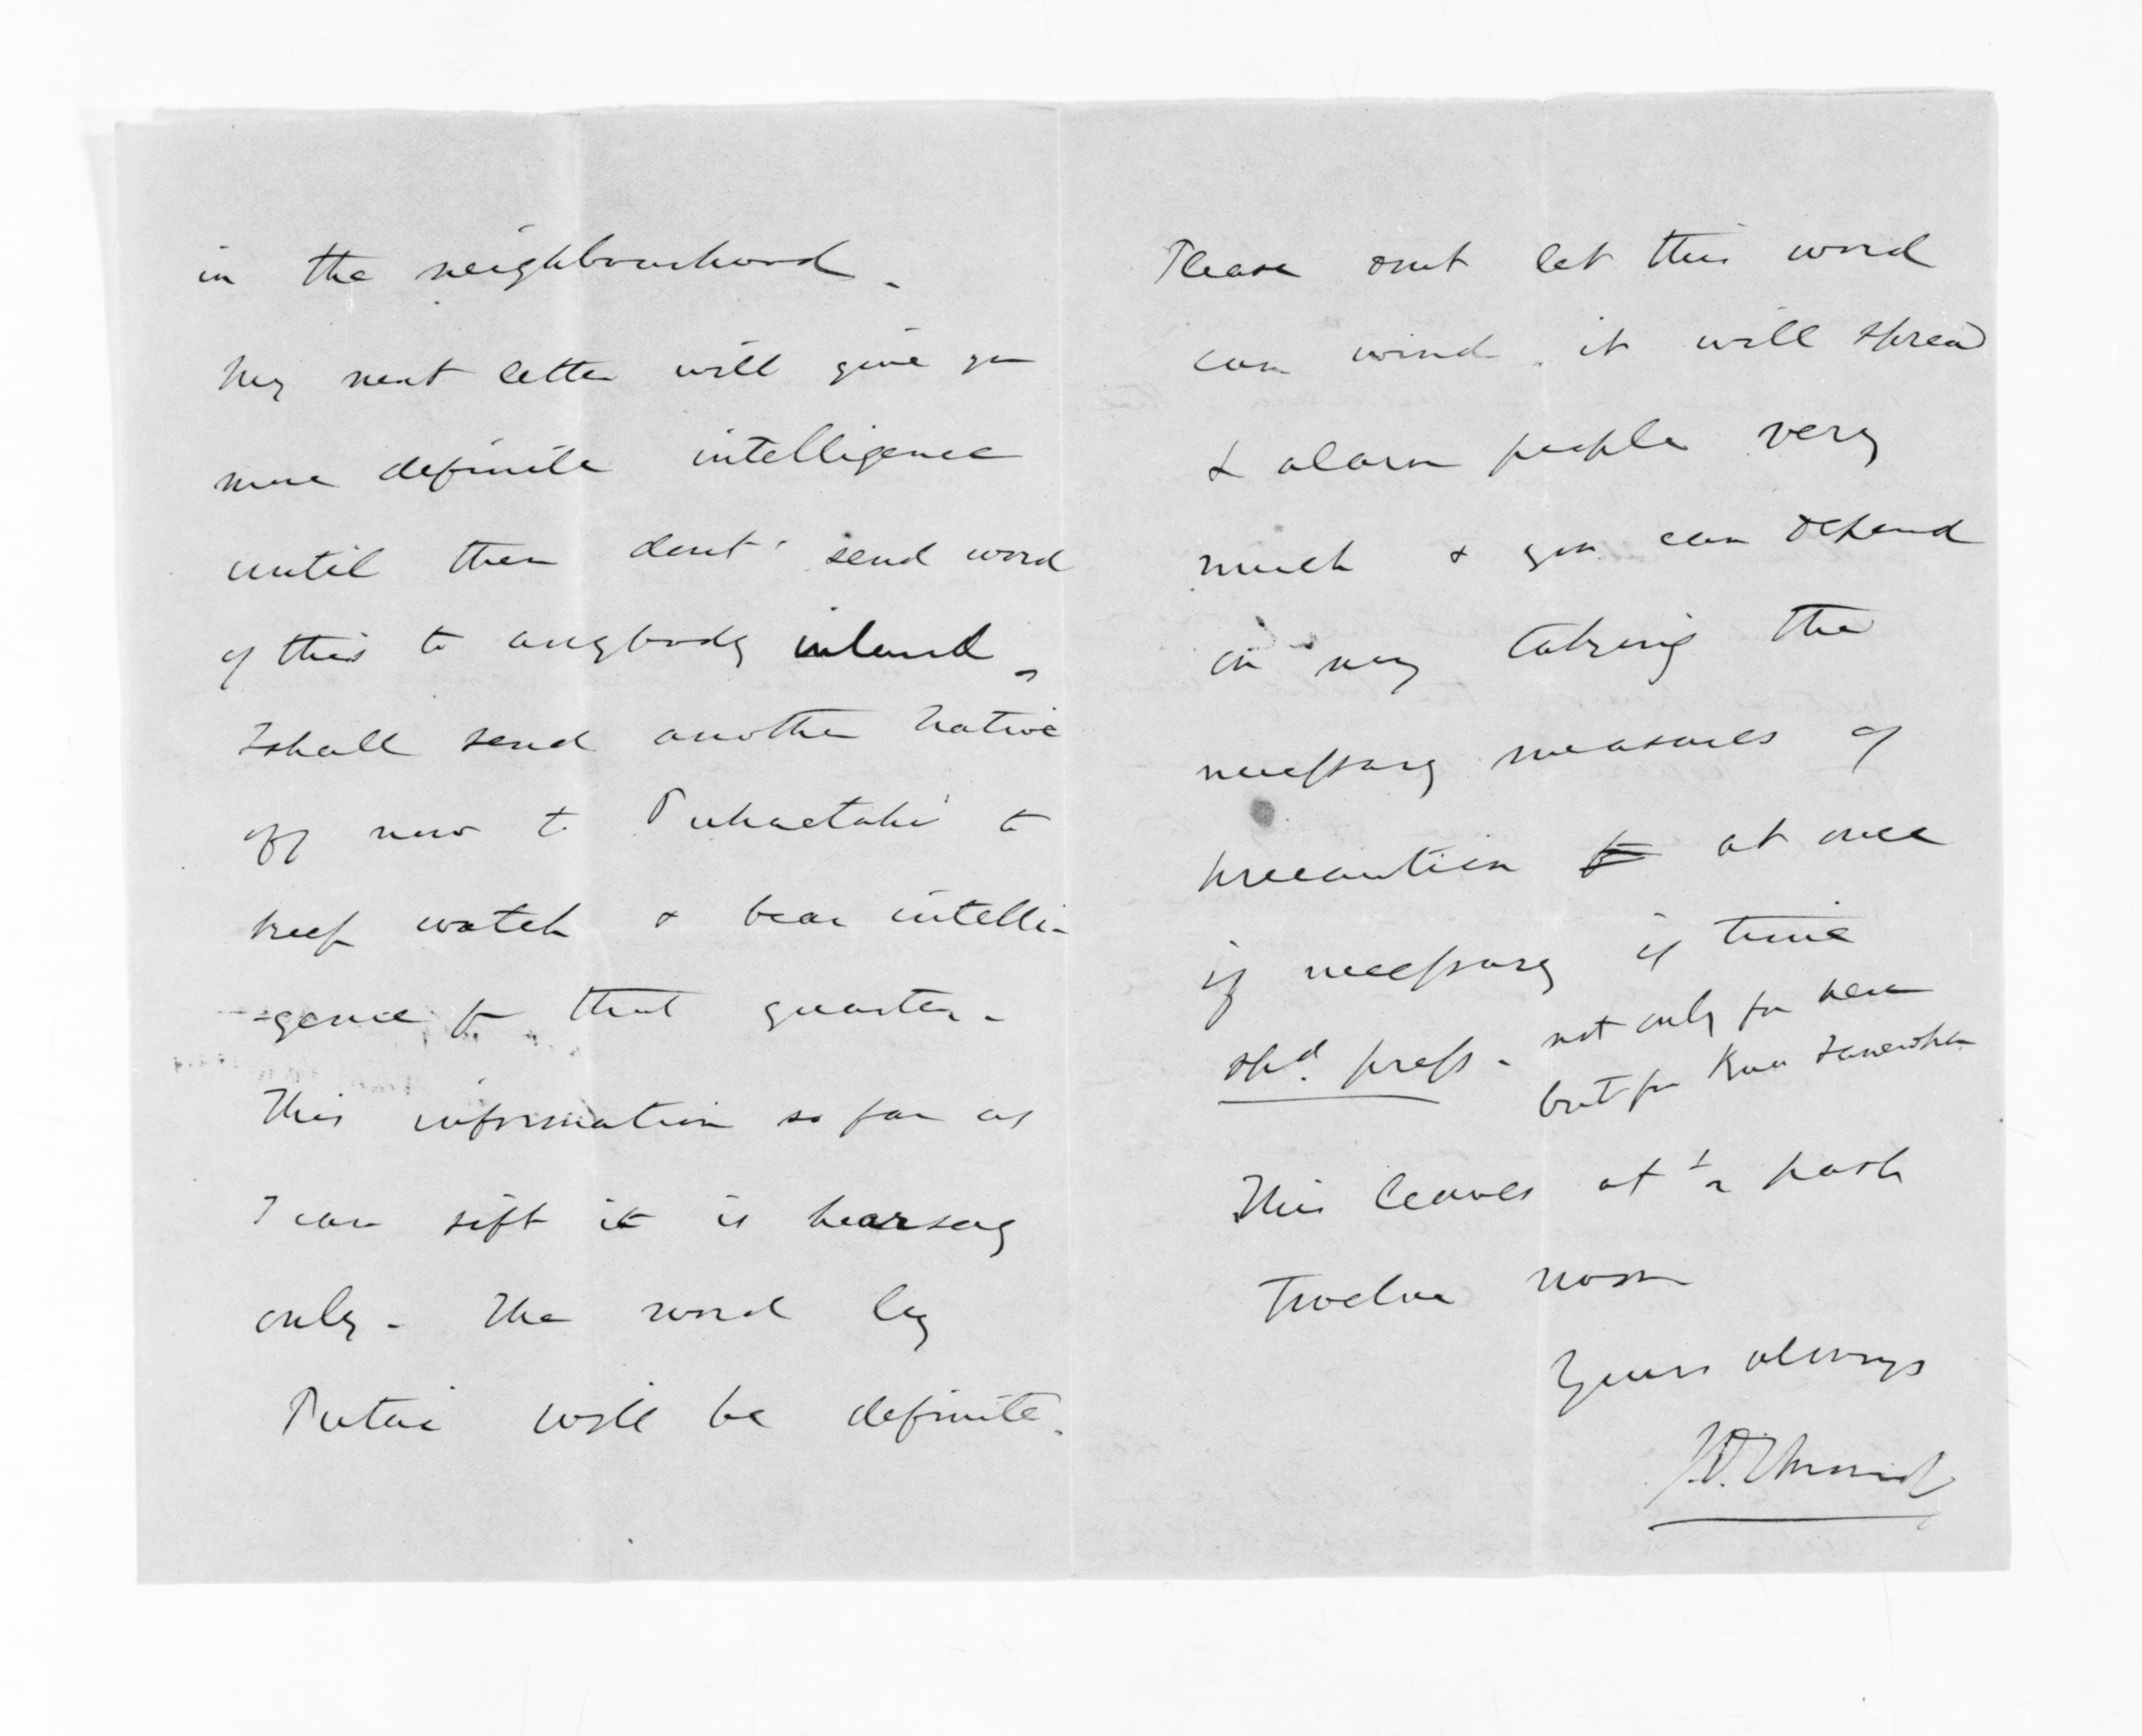 in the neighbourhood.
My next letter will give you
more definite intelligence
until then dont send word
of this to anybody inland.
I shall send another Native
off now to Puhaetahi to
keep watch & bear intelli-
-gence fr that quarter.-
This information so far as
I can sift it is hearsay
only - The word by
Putai will be definite.
Please dont let this word
wind. it will spread
& alarm people very
much & you can depend
on my taking the
necessary measures of
precaution to at once
if necessary if time
shd. press - not only for here
but for
This leaves at ½ past
Twelve noon
Yours always